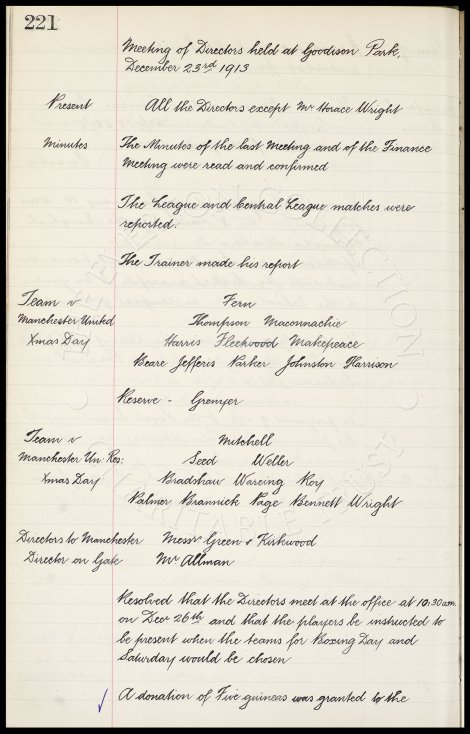 221
Meeting of Directors held at Goodison Park,
December 23rd 1913
Present All the Directors except Mr Horace Wright
Minutes The Minutes of the last Meeting and of the Finance
Meeting were read and confirmed
The League and Central League matches were
reported.
The Trainer made his report
Team v Fern
Manchester United Thompson Maconnachie
Xmas Day Harris Fleetwood Makepeace
Beare Jefferis Parker Johnston Harrison
Reserve - Grenyer
Team v Mitchell
Manchester Un: Res: Seed Weller
Xmas Day Bradshaw Wareing Roy
Palmer Brannick Page Bennett Wright
Directors to Manchester Messrs Green & Kirkwood
Director on Gate Mr Allman
Resolved that the Directors meet at the office at 10:30 am.
on Decr 26th and that the players be instructed to
be present when the teams for Boxing Day and
Saturday would be chosen
A donation of Five guineas was granted to the
EVERTON COLLECTION
CHARITABLE TRUST